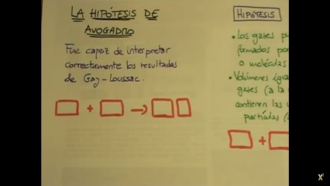 LA HIPÓTESIS DE
AVOGADRO
Fue capaz de interpretar
correctamente los resultados
de Gay-Loussac.
+ →
HIPÓTESIS
• Los gases
formados
o molécula
• Volúmenes
gases (a la
contienen las
+